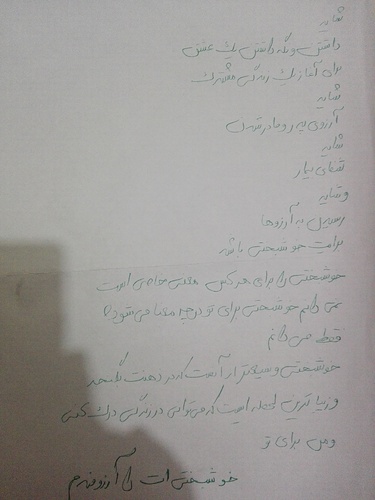 شاید
داشتن و نگه داشتن یک عشق
برای آغاز یک زندگی مشترک
شاید
آرزوی پدر و مادر شدن
شاید
شفای بیمار
و شاید
رسیدن به آرزوها
برایت خوشبختی باشد
خوشبختی را برای هر کس معنی خاصی است
نمی دانم خوشبختی برای تو در چه معنا می شود
فقط می دانم
خوشبختی وسیعتر از آنست که در ذهنت بگنجد
و زیباترین لحظه ایست که می توانی در زندگی درک کنی
و من برای تو
خوشبختی ات را آرزومندم